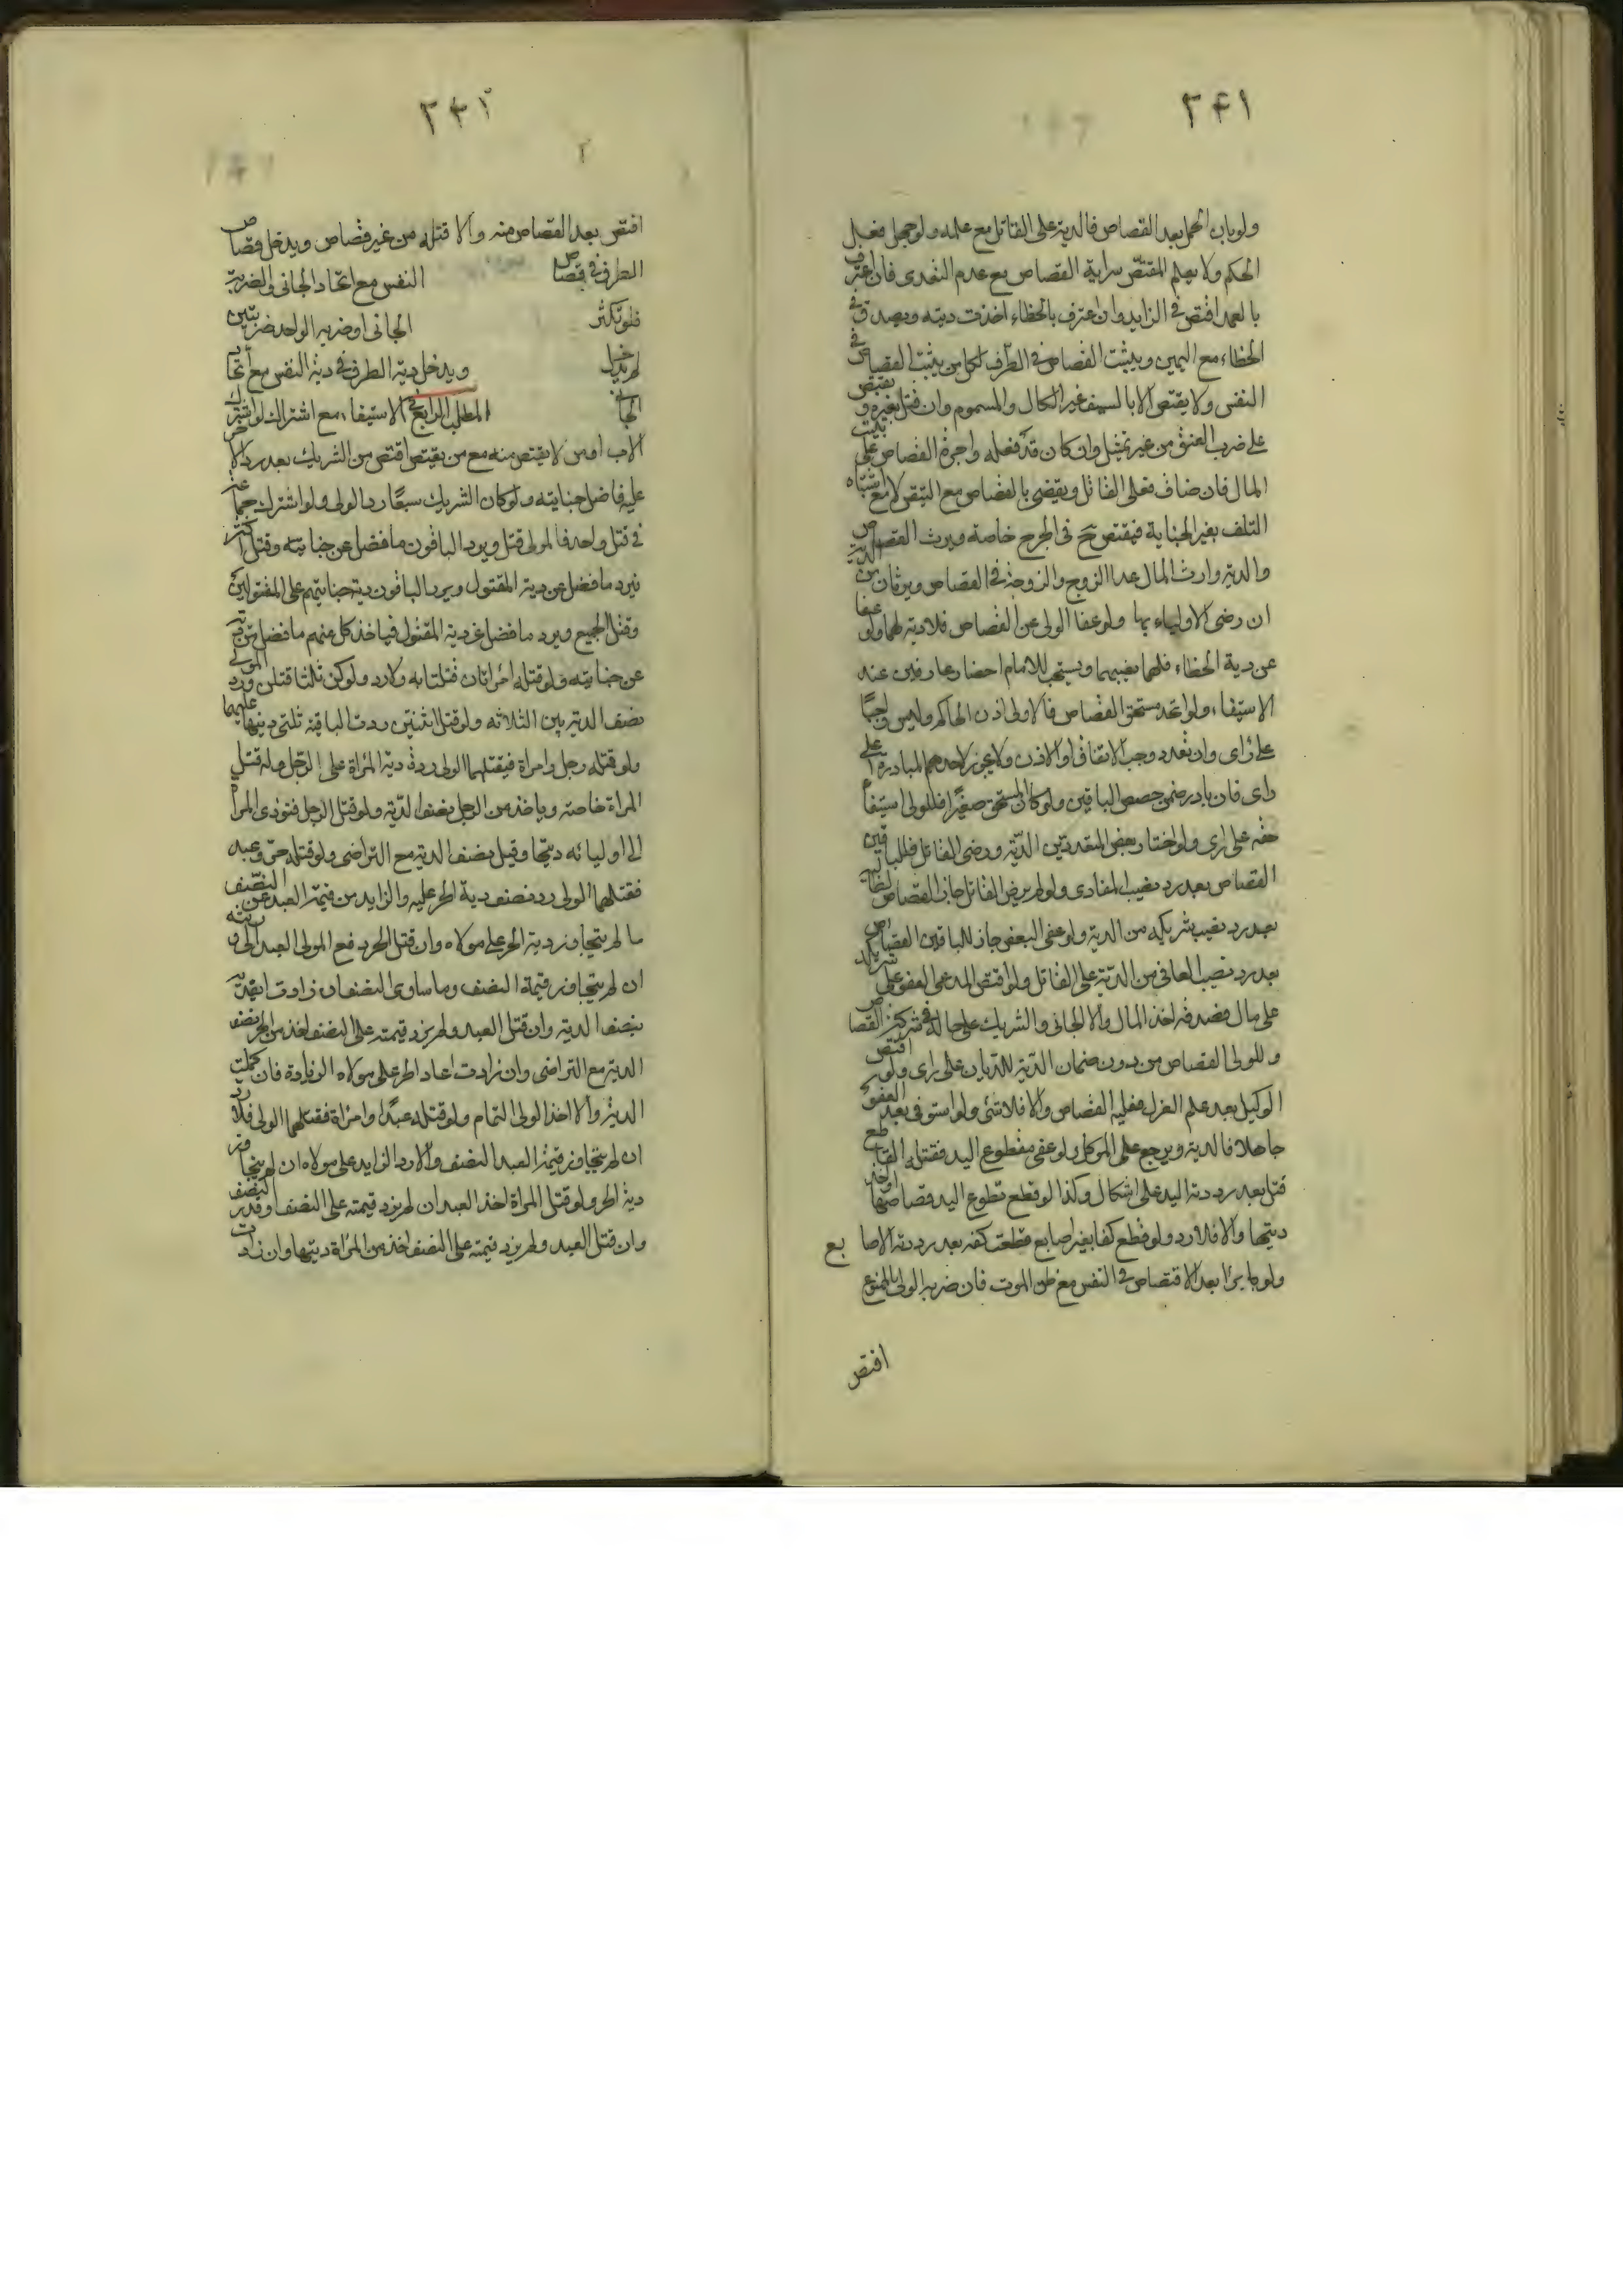 ٣٤١
ولو بان الحمل بعد القصاص فالدية على القاتل مع علمه ولو جهل فعلى
الحكم ولا يعلم المقتص سراية القصاص مع عدم التعدى فان اعترف
بالعمد اقتص فى الزايد وان اعترف بالخطاء اخذت ديته ويصدق فى
الخطاء مع اليمين ويثبت القصاص فى الطرف لكل من يثبت القصاص فى
النفس ولا يقتص الا بالسيف غير الكال والمسموم وان قتل بغيره و يقتص
على ضرب العنق من غير تمثيل وان كان قد فعله واجرة القصاص على بيت
المال فان ضاف فعلى القاتل ويقضى بالقصاص مع التيقن لا مع اشتباه
التلف بغير الجناية فيقتص ح فى الجرح خاصة ويرث القصاص
والدية وارث المال عدا الزوج والزوجة فى القصاص ويرثان من الدية
ان رضى الاولياء بها ولو عفا الولى عن القصاص فلا دية لهما ولو عفا
عن دية الخطاء فلهما نصيبهما ويستحب للامام احضار عارفين عند
الاستيفاء ولو اتحد مستحق القصاص فالاولى اذن الحاكم وليس واجبًا
على راى وان تعدد وجب الاتفاق او الاذن ولا يجوز لاحدهم المبادرة على
راى فان بادر ضمن حصص الباقين ولو كان المستحق صغيرًا فللولى استيفاء
حقه على راى ولو اختار بعض المتعددين الدية ورضى القاتل فللباقين
القصاص بعد رد نصيب المفادى ولو لم يرض القاتل جاز القصاص لطالبه
بعد رد نصيب شريكه من الدية ولو عفى البعض جاز للباقين القصاص
بعد رد نصيب العافى من الدية على القاتل ولو اقتص المدعى العفو على شريكه
على مال فصدقه اخذ المال والا الجانى والشريك على حاله فى شركة القصاص
وللولى القصاص من دون ضمان الدية للديان على راى ولو اقتص
الوكيل بعد علم العزل فعليه القصاص والا فلا شئ ولو استوفى بعد العفو
جاهلا فالدية ويرجع على الموكل ولو عفى مقطوع اليد فقتله القاطع
قتل بعد رد دية اليد على اشكال وكذا لو قطع مقطوع اليد قصاصا او اخذ
ديتها والا فلا رد ولو قطع كفا بغير اصابع قطعت كفه بعد رد دية الاصابع
ولو برا بعد الاقتصاص فى النفس مع ظن الموت فان ضربه الولى بالممنوع
اقتص
٣٤٢
اقتص بعد القصاص منه والا قتله من غير قصاص ويدخل قصاص
الطرف فى قصاص النفس مع اتحاد الجانى والضربة
فلو تكثر الجانى او ضربه الواحد ضربتين
لم يدخل ويدخل دية الطرف فى دية النفس مع اتحاد
الجانى المطلب الرابع فى الاستيفاء مع اشتراك لو اشترك
الاب او من لا يقتص منه مع من يقتص اقتص من الشريك بعد رد الاخر
عليه فاضل جنايته ولو كان الشريك سبعًا رد الولى ولو اشترك جماعة
فى قتل واحد فالولى قتل ويرد الباقون ما فضل عن جنايته وقتل اكثر
فيرد ما فضل عن دية المقتول ويرد الباقون دية جنايتهم على المقتولين
وقتل الجميع ويرد ما فضل عن دية المقتول فياخذ كل منهم ما فضل من ديته
عن جنايته ولو قتله امراتان قتلتا به ولا رد ولو كن ثلثا قتلن ورد الولى
نصف الدية بين الثلاثة ولو قتل اثنتين ردت الباقية ثلثى ديتها عليهما
ولو قتله رجل وامراة فيقتلهما الولى ورد دية المراة على الرجل وله قتل
المراة خاصة وياخذ من الرجل نصف الدية ولو قتل الرجل فتؤدى المراة
الى اوليائه ديتها وقيل نصف الدية مع التراضى ولو قتله حر وعبد
فقتلهما الولى رد نصف دية الحر عليه والزايد من قيمة العبد عن النصف
ما لم يتجاوز دية الحر على مولاه وان قتل الحر دفع المولى العبد الى ورثته
ان لم يتجاوز قيمة النصف وما ساوى النصف ان زادت او يفديه
بنصف الدية وان قتل العبد ولم يزد قيمته على النصف اخذ من الحر نصف
الدية مع التراضى وان زادت اعاد الحر على مولاه الزيادة فان كملت
الدية والا اخذ الولى التمام ولو قتله عبد وامراة فقتلهما الولى فلا رد
ان لم يتجاوز قيمة العبد النصف والا رد الزايد على مولاه ان لم يتجاوز
دية الحر ولو قتل المراة اخذ العبد ان لم يزد قيمته على النصف او قدر النصف
وان قتل العبد ولم يزد قيمته على النصف اخذ من المراة ديتها وان زادت